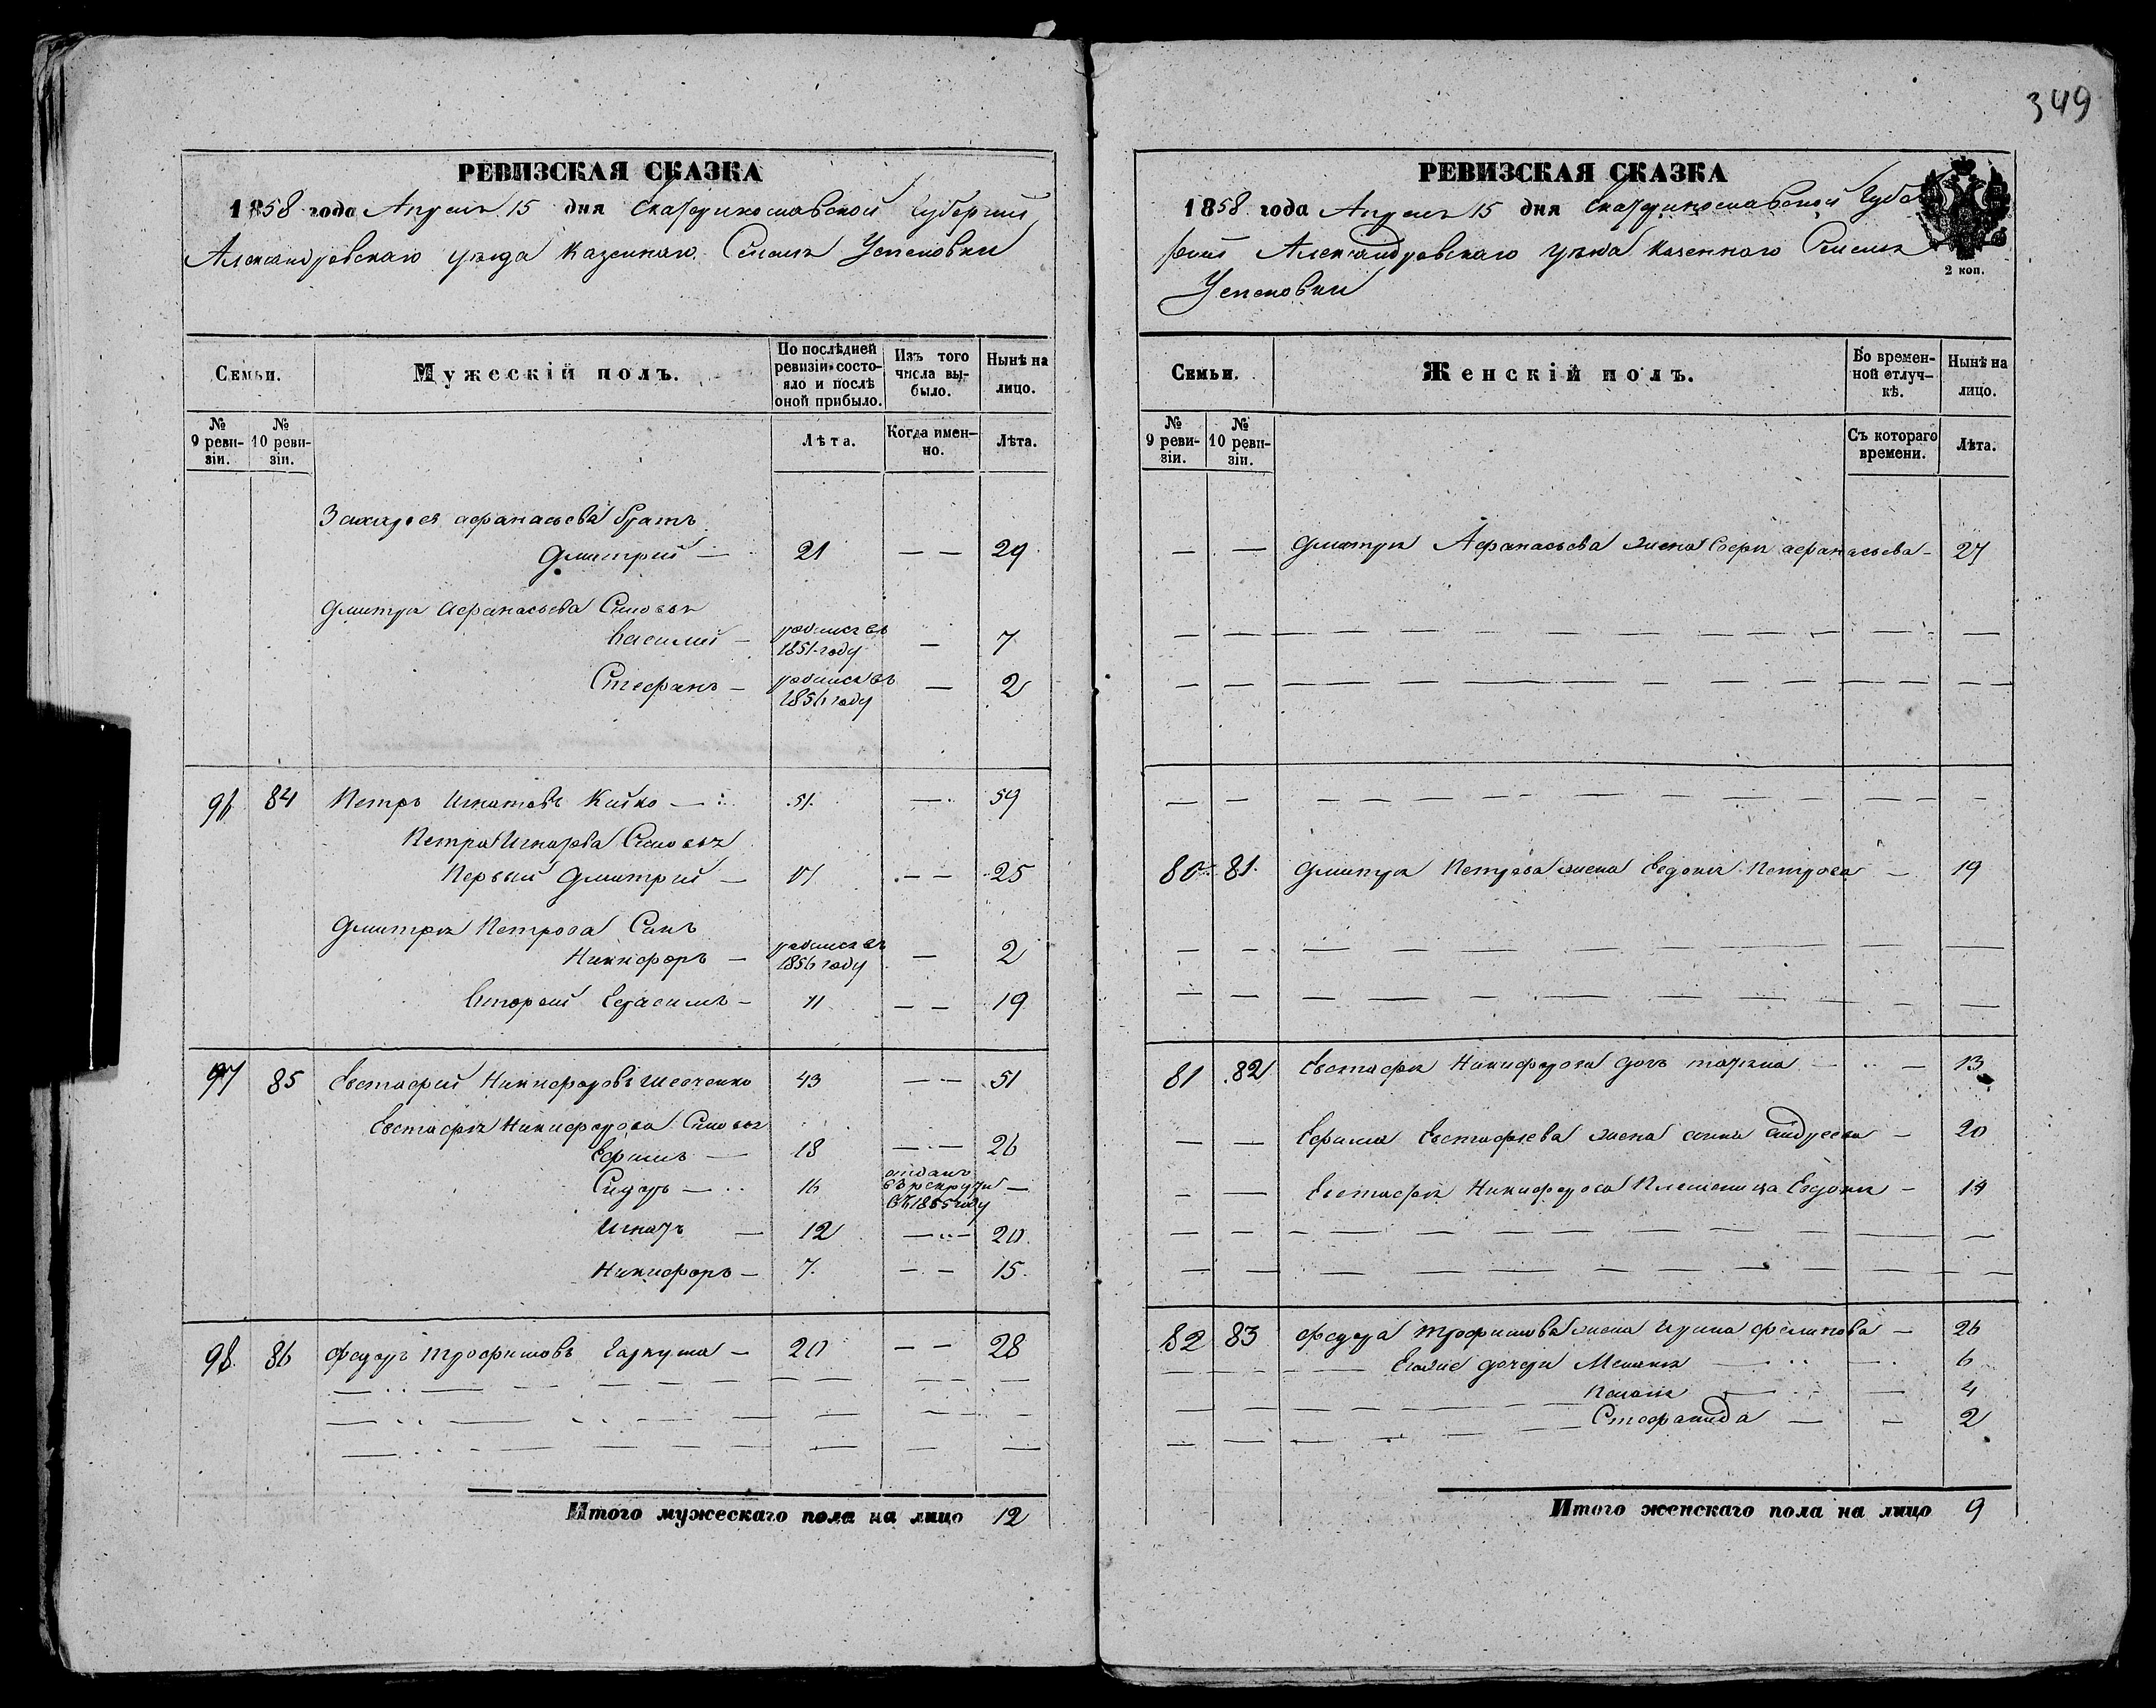 РЕВИЗСКАЯ СКАЗКА
1858 года Апреля 15 дня Екатеринославской Губернии
Александровского уезда Казенного Селения Успеновки
Семьи.
Мужескій полъ.
По послѣдней ревизіи состояло и послѣ оной прибыло.
Изъ того числа выбыло.
Нынѣ на лицо.
№ 9 ревизіи.
№ 10 ревизіи.
Лѣта.
Когда именно.
Лѣта.
Захария афанасьева братъ
Дмитрий — 21 — — 29
Дмитрия афанасьева Сыновья
Василий — родился въ 1851 году — 7
Стефанъ — родился въ 1856 году — 2
96 84 Петръ Игнатовъ — 51 — 59
Петра Игнатова Сыновья
Первый Дмитрий — 17 — — 25
Дмитрия Петрова Сынъ
Никифоръ — родился въ 1856 году — 2
Вторый Герасимъ — 11 — — 19
97 85 Евстафий Никифоровъ Шевченко 43 — — 51
Евстафия Никифорова Сыновья
Ефимъ — 18 — — 26
Сидоръ — 16 отданъ въ рекруты въ 1855 году —
Игнатъ — 12 — — 20
Никифоръ — 7 — — 15
98 86 Федоръ Трофимовъ Гаркуша — 20 — — 28
Итого мужескаго пола на лицо 12
349
РЕВИЗСКАЯ СКАЗКА
1858 года Апреля 15 дня Екатеринославской Губе
рнии Александровского уезда казенного Селения
Успеновки
2 коп.
Семьи.
Женскій полъ.
Во временной отлучкѣ.
Нынѣ на лицо.
№ 9 ревизіи.
№ 10 ревизіи.
Съ котораго времени.
Лѣта.
— — Дмитрия Афанасьева жена София афанасьева — 27
80 81 Дмитрия Петрова жена Евдокия Петрова — 19
81 82 Евстафия Никифорова дочь — 13
— — Ефима Евстафиева жена Андреева — 20
— — Евстафия Никифорова Племеница Евдокия — 14
82 83 Федора Трофимова жена Ирина Филипова — 26
Егоже дочери Мелания — 6
Пелагия — 4
Стефанида — 2
Итого женскаго пола на лицо 9